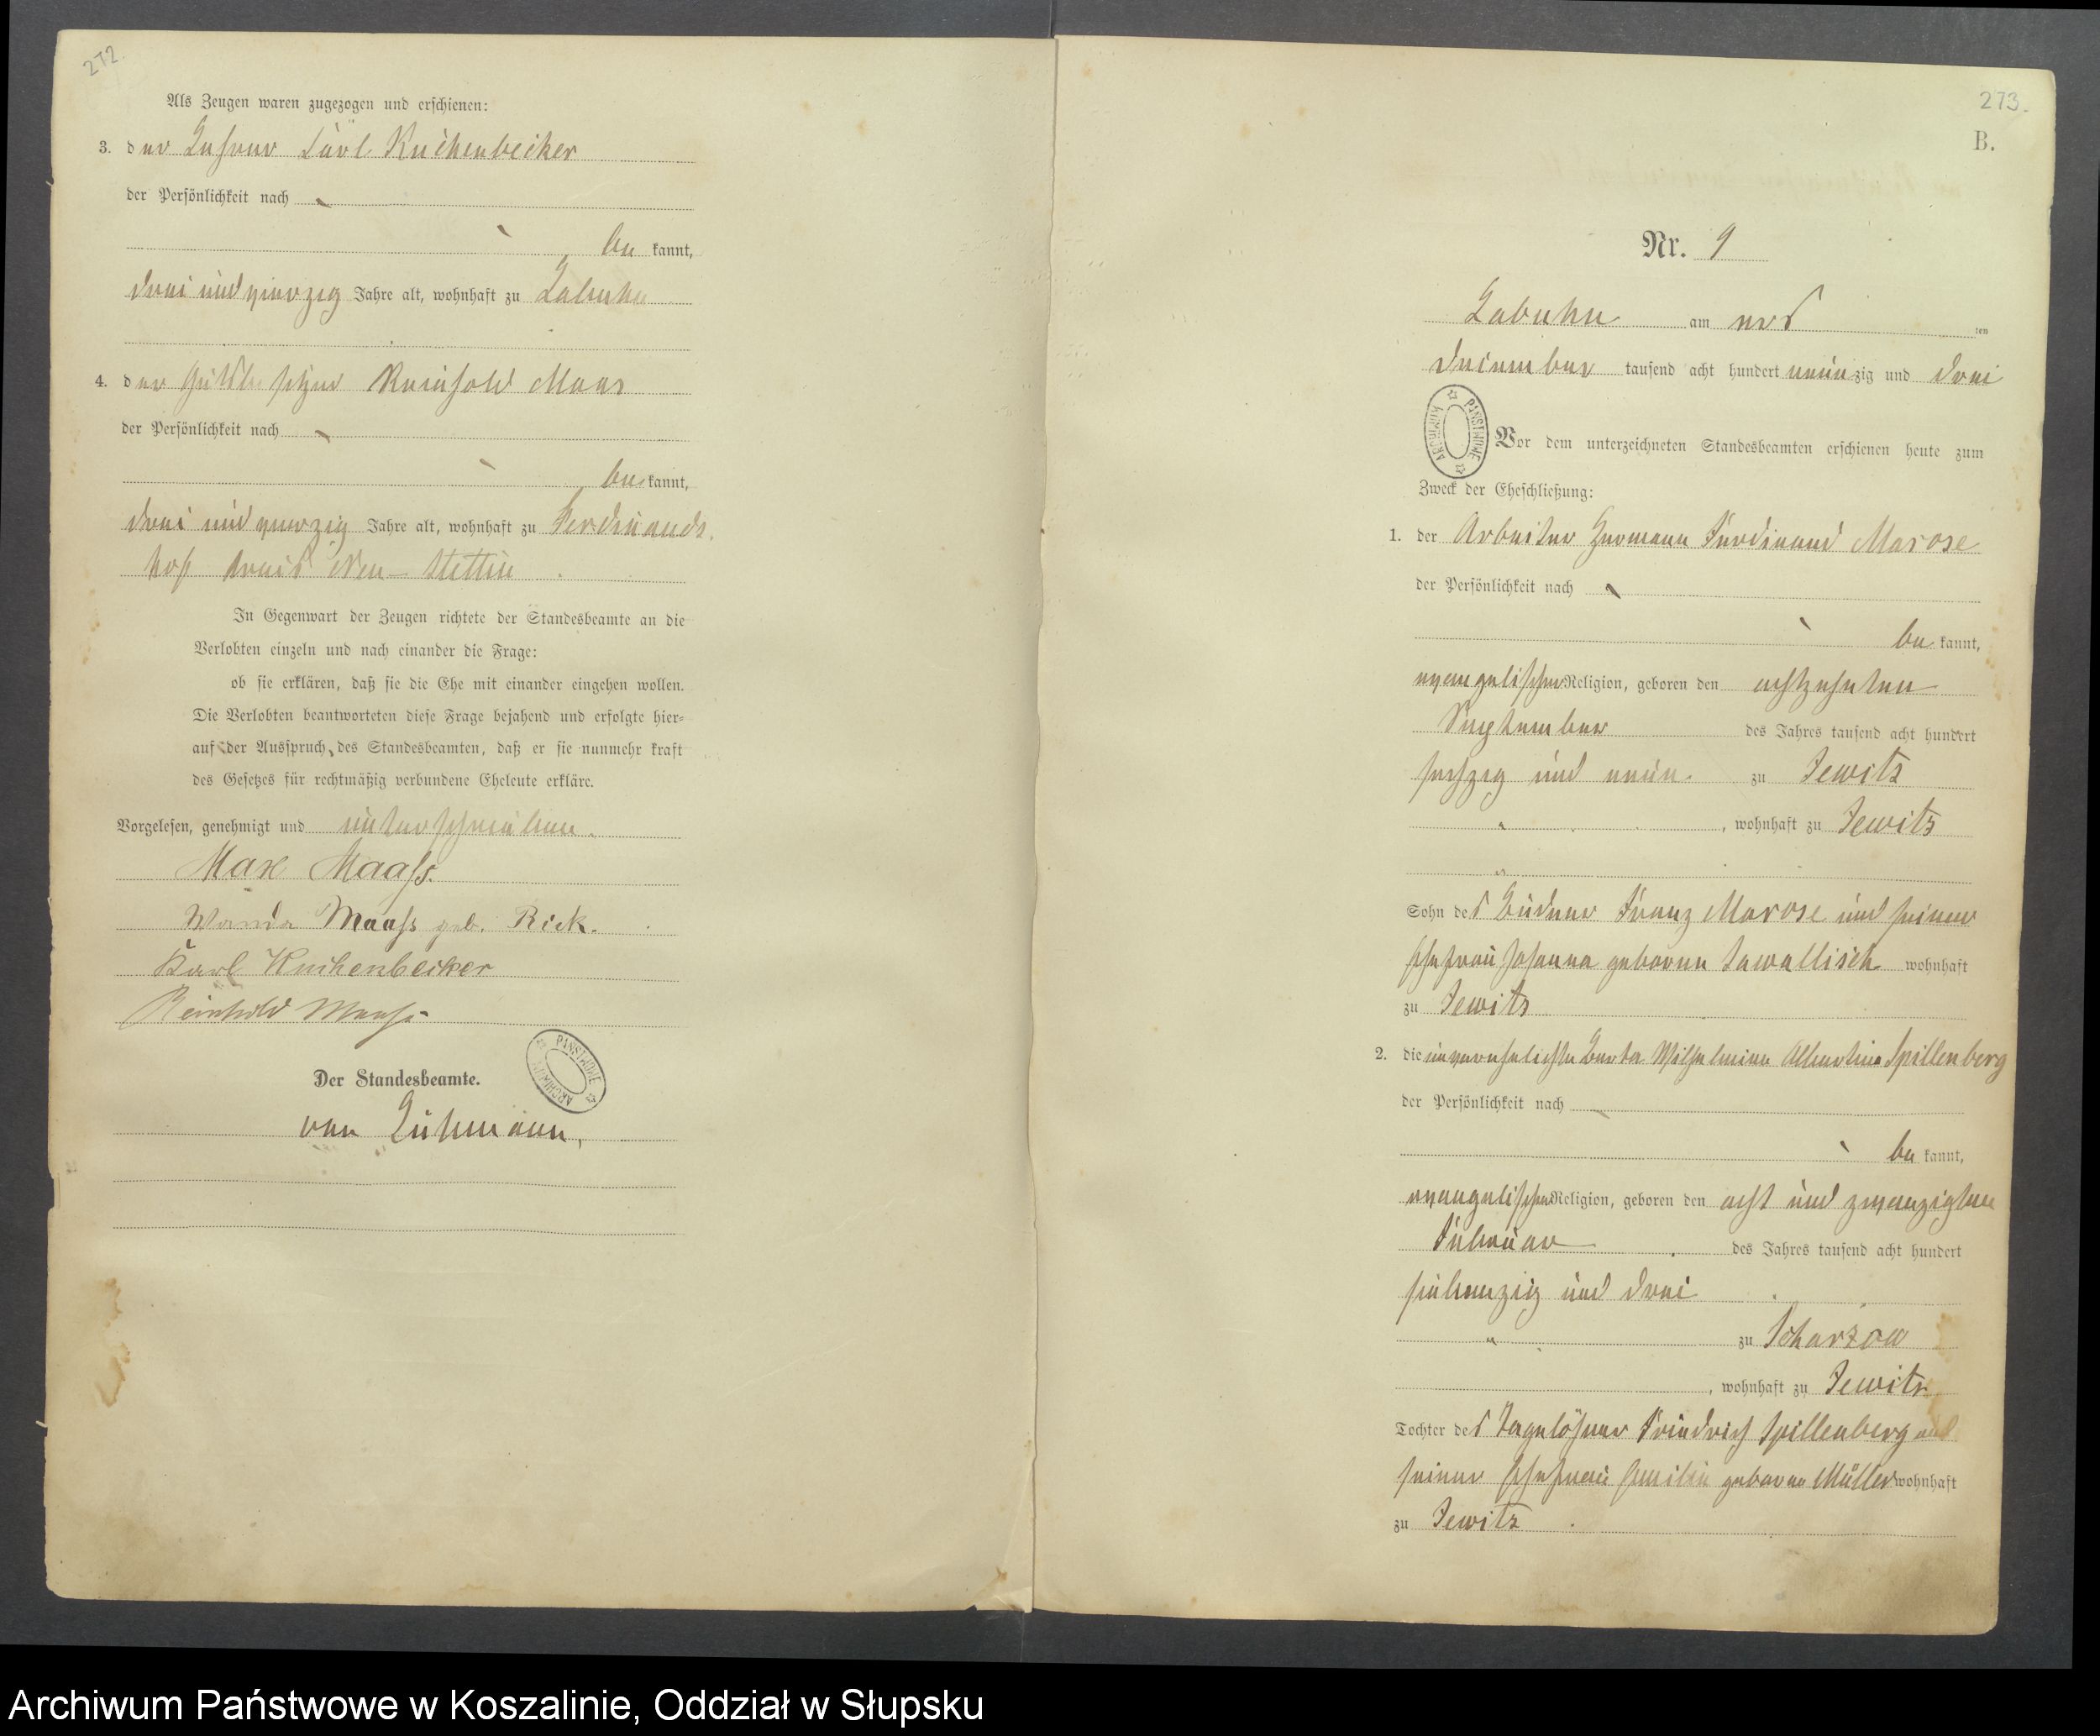 272
Als Zeugen waren zugezogen und erschienen:
3. der Lehrer Karl Kuchenbecker
der Persönlichkeit nach
be kannt,
drei und vierzig Jahre alt, wohnhaft zu Labuhn
4. der Reinhold Maas
der Persönlichkeit nach
be kannt,
drei und vierzig Jahre alt, wohnhaft zu Ferdinands
hof Kreis Neu-Stettin
In Gegenwart der Zeugen richtete der Standesbeamte an die
Verlobten einzeln und nach einander die Frage:
ob sie erklären, daß sie die Ehe mit einander eingehen wollen.
Die Verlobten beantworteten diese Frage bejahend und erfolgte hier-
auf der Ausspruch des Standesbeamten, daß er sie nunmehr kraft
des Gesetzes für rechtmäßig verbundene Eheleute erkläre.
Vorgelesen, genehmigt und unterschrieben.
Max Maaß.
Wanda Maaß geb. Rick.
Karl Kuchenbecker
Reinhold Maaß
ARCHIWUM PAŃSTWOWE
Der Standesbeamte.
von
273.
B.
Nr. 9
Labuhn am ers ten
Dezember tausend acht hundert neun zig und drei
ARCHIWUM PAŃSTWOWE
Vor dem unterzeichneten Standesbeamten erschienen heute zum
Zweck der Eheschließung:
1. der Arbeiter Hermann Ferdinand Marose
der Persönlichkeit nach
be kannt,
evangelischer Religion, geboren den achtzehnten
September des Jahres tausend acht hundert
sechzig und neun. zu Jewitz
, wohnhaft zu Jewitz
Sohn des Büdner Franz Marose und seiner
Ehefrau Johanna geborene Sawallisch wohnhaft
zu Jewitz
2. die unverehelichte Berta Wilhelmine Albertine Spillenberg
der Persönlichkeit nach
be kannt,
evangelischer Religion, geboren den acht und zwanzigsten
Februar des Jahres tausend acht hundert
siebenzig und drei
zu Scharzow
, wohnhaft zu Jewitz
Tochter des Tagelöhner Friedrich Spillenberg und
seiner Ehefrau Emilie geborene Müller wohnhaft
zu Jewitz
Archiwum Państwowe w Koszalinie, Oddział w Słupsku